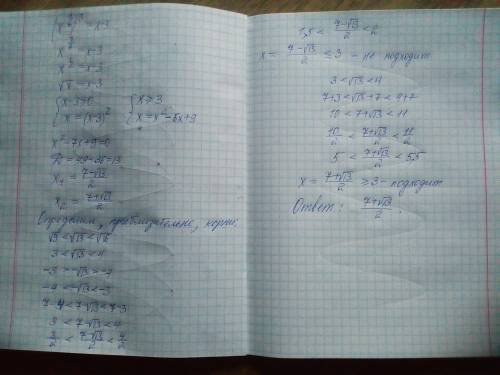 x = x-3
x = x-3
√x = x-3
{ x-3≥0 { x≥3
x = (x-3)² x = x²-6x+9
x²-7x+9=0
D = 49-36=13
x₁ = (7-√13)/2
x₂ = (7+√13)/2
Определим, приблизительно, корни:
√9 < √13 < √16
3 < √13 < 4
-3 > -√13 > -4
-4 < -√13 < -3
7-4 < 7-√13 < 7-3
3 < 7-√13 < 4
3/2 < (7-√13)/2 < 4/2
1,5 < (7-√13)/2 < 2
x = (7-√13)/2 ≤ 3 - не подходит
3 < √13 < 4
7+3 < √13+7 < 4+7
10 < 7+√13 < 11
10/2 < (7+√13)/2 < 11/2
5 < (7+√13)/2 < 5,5
x = (7+√13)/2 ≥ 3 - подходит
Ответ: (7+√13)/2.